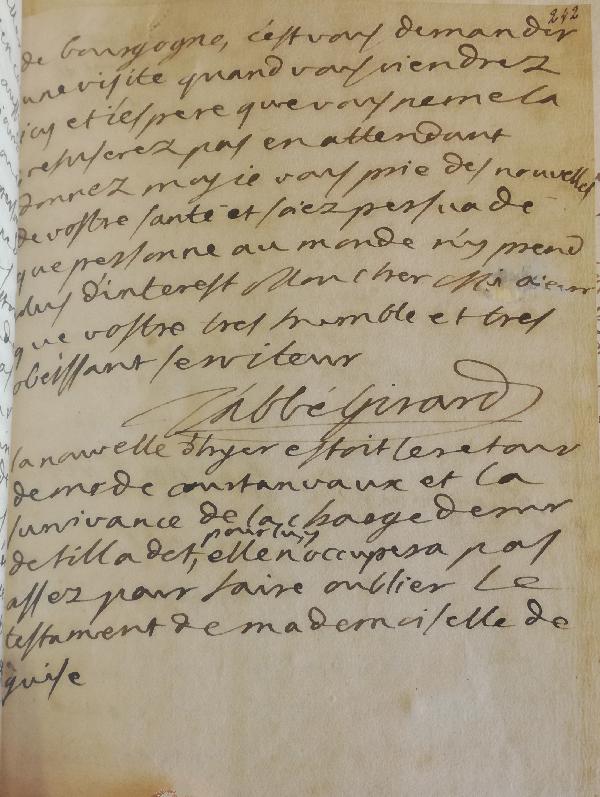 242
de bourgogne, c'est vous demander
une visite quand vous viendrez
icy et i'espere que vous ne me la
refuserez pas en attendant
donnez moy ie vous prie des nouvelles
de vostre santé et soiez persuadé
que personne au monde n'y prend
plus d'interest Mon cher
que vostre tres humble et tres
obéissant serviteur
L'abbé Girard
la nouvelle d'hyer estoit le retour
de mr de courtanvaux et la
survivance de la charge de mr
de tilladet, pour luy, elle n'occupera pas
assez pour faire oublier le
testament de mademoiselle de
guise